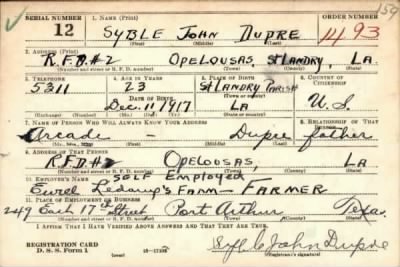 159
SERIAL NUMBER 1. NAME (Print) ORDER NUMBER
12 SYBLE JOHN DUPRE 1493
(First) (Middle) (Last)
2. ADDRESS (Print)
R.F.D.#2 OPELOUSAS, St LANDRY, LA.
(Number and street or R. F. D. number) (Town) (County) (State)
3. TELEPHONE 4. AGE IN YEARS 5. PLACE OF BIRTH 6. COUNTRY OF CITIZENSHIP
5311 23 St LANDRY PARISH
DATE OF BIRTH
Dec. 11 1917 LA U.S.
7. NAME OF PERSON WHO WILL ALWAYS KNOW YOUR ADDRESS 8. RELATIONSHIP OF THAT PERSON
Arcade - Dupre father
9. ADDRESS OF THAT PERSON
R.F.D.#2 OPELOUSAS LA
(Number and street or R. F. D. number) (Town) (County) (State)
10. EMPLOYER'S NAME SELF EMPLOYED
FARM - FARMER
11. PLACE OF EMPLOYMENT OR BUSINESS
249 East 17th Street Port Arthur Texas
(Number and street or R. F. D. number) (Town) (County) (State)
I AFFIRM THAT I HAVE VERIFIED ABOVE ANSWERS AND THAT THEY ARE TRUE.
REGISTRATION CARD
D. S. S. Form 1 Syble John Dupre
(Registrant's signature)